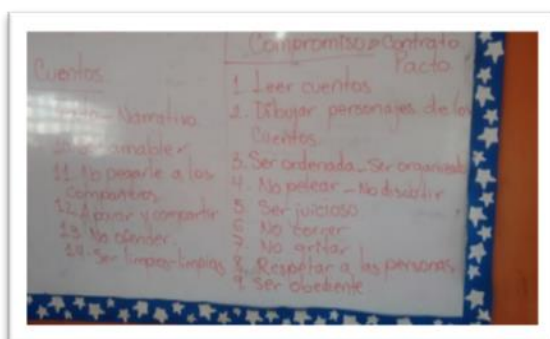 Cuentos
Narrativo
amable
11. No pegarle a los
compañeros
12. Apoyar y compartir
13. No ofender
14. Ser limpios-limpias
Compromiso Contrato
Pacto
1. Leer cuentos
2. Dibujar personajes de los
Cuentos
3. Ser ordenada - Ser organizado
4. No pelear - No discutir
5. Ser juicioso
6. No correr
7. No gritar
8. Respetar a las personas
9. Ser obediente